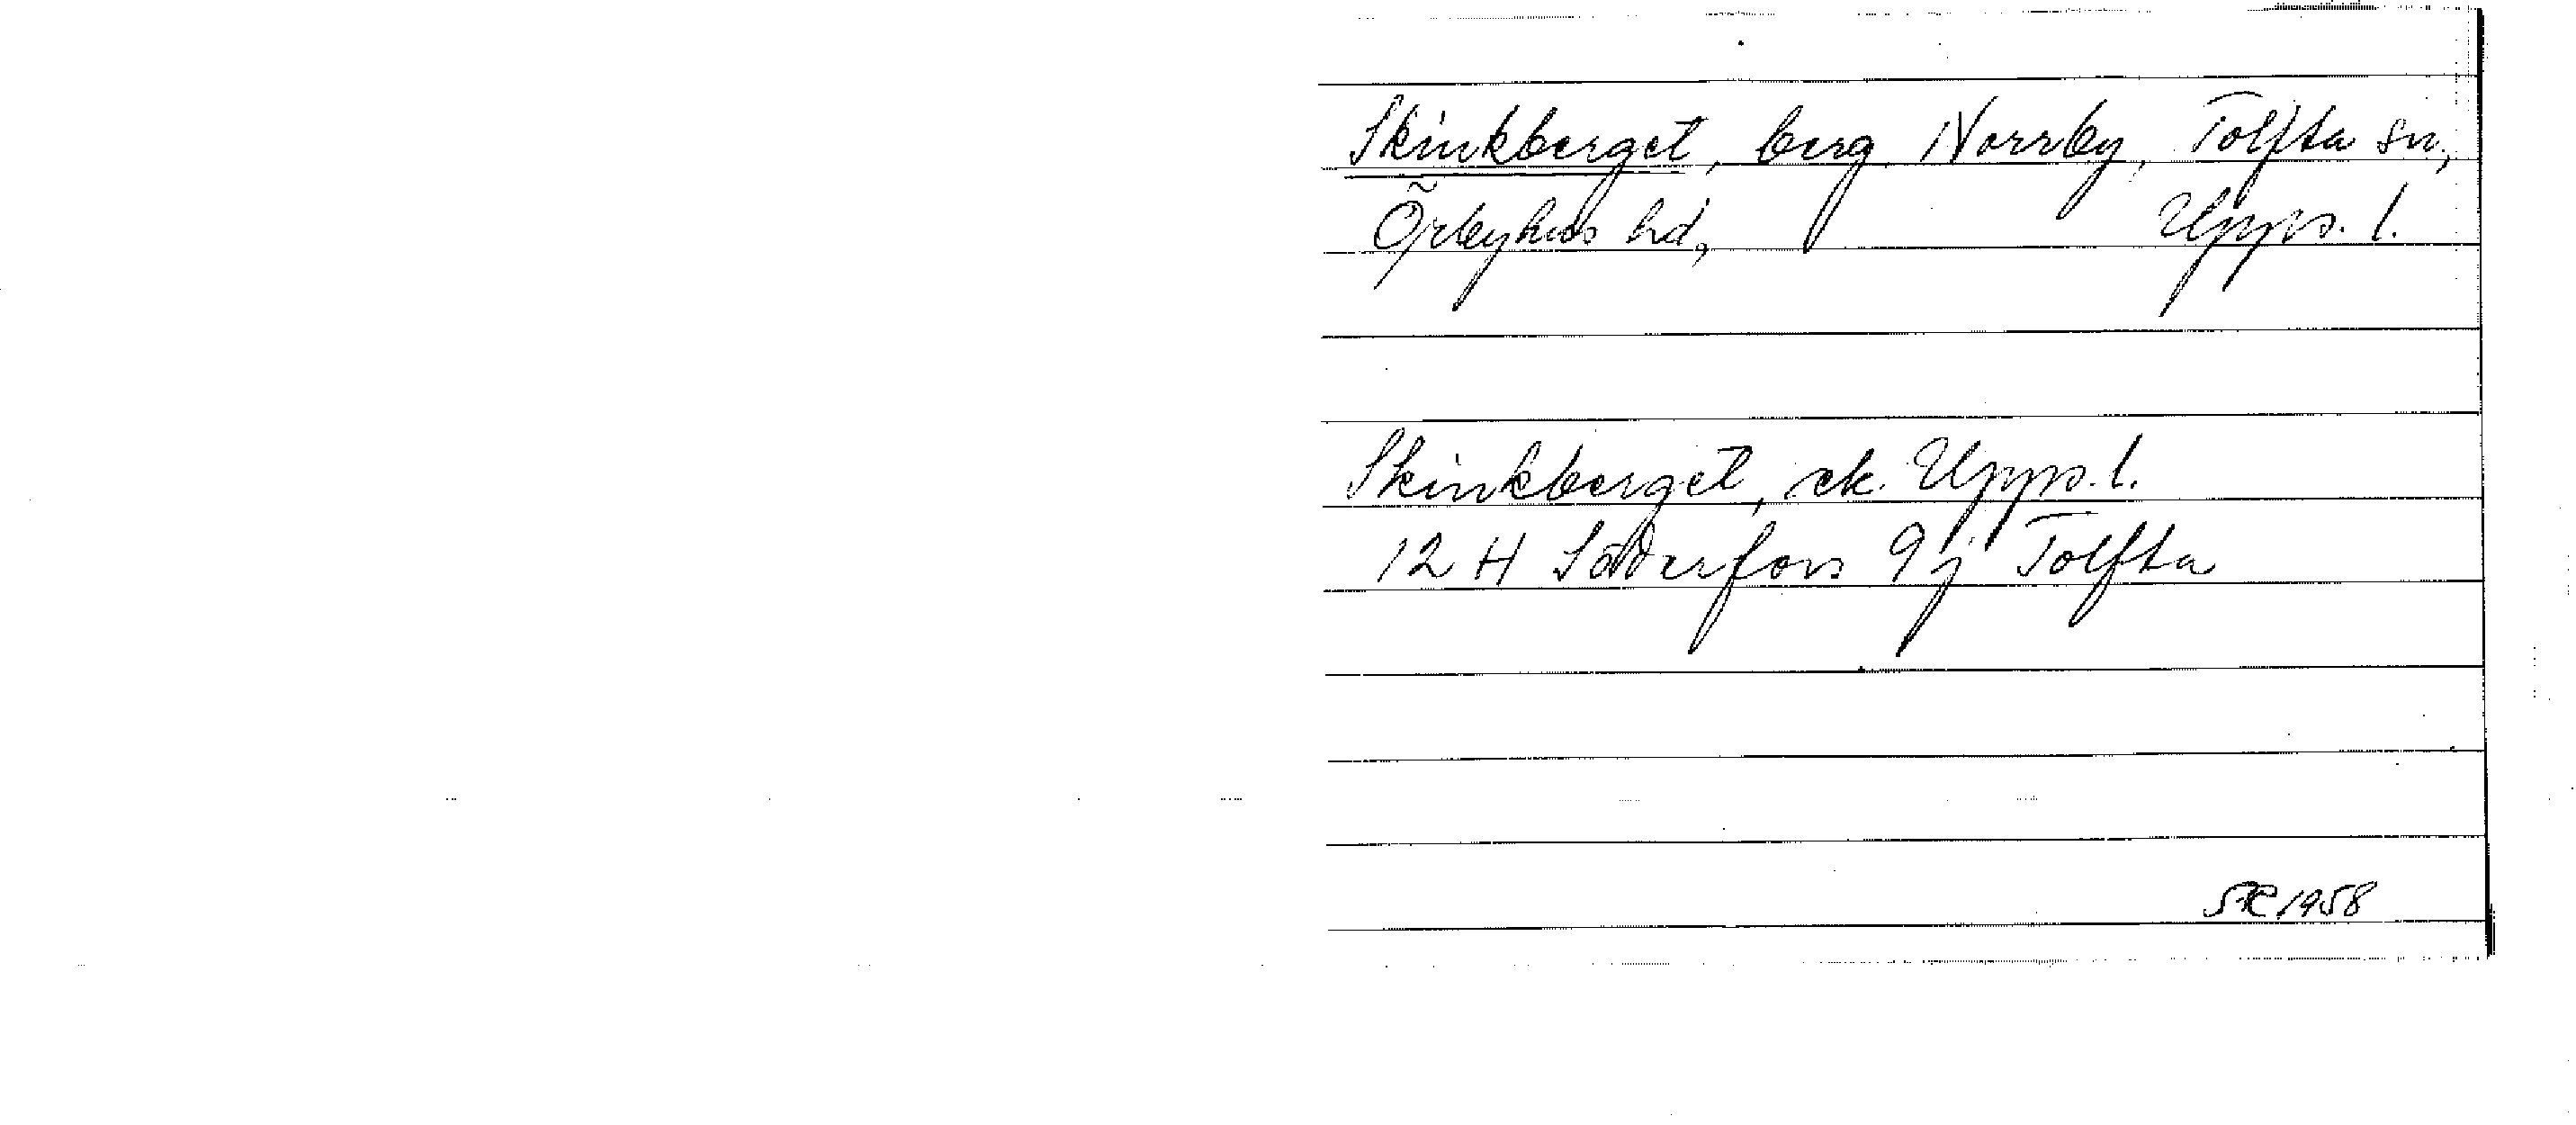 Skinkberget, berg, Norrby, Tolfta sn,
Örbyhus hd, Upps. l.
Skinkberget, ek. Upps. l.
12 H Söderfors 9j Tolfta
1958